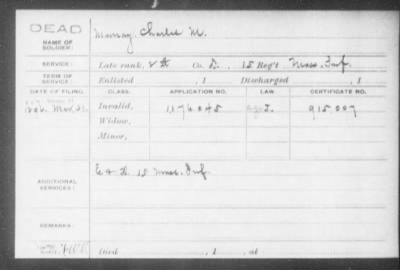 DEAD
NAME OF SOLDIER:
Murray, Charles M.
SERVICE:
Late rank, Co. D. 15 Reg't Mass. Inf.
TERM OF SERVICE:
Enlisted , 1 Discharged , 1
DATE OF FILING. CLASS. APPLICATION NO. LAW. CERTIFICATE NO.
Invalid, 1176045 915.007
Widow,
Minor,
ADDITIONAL SERVICES:
15 Mass. Inf
REMARKS:
Died , 1 , at